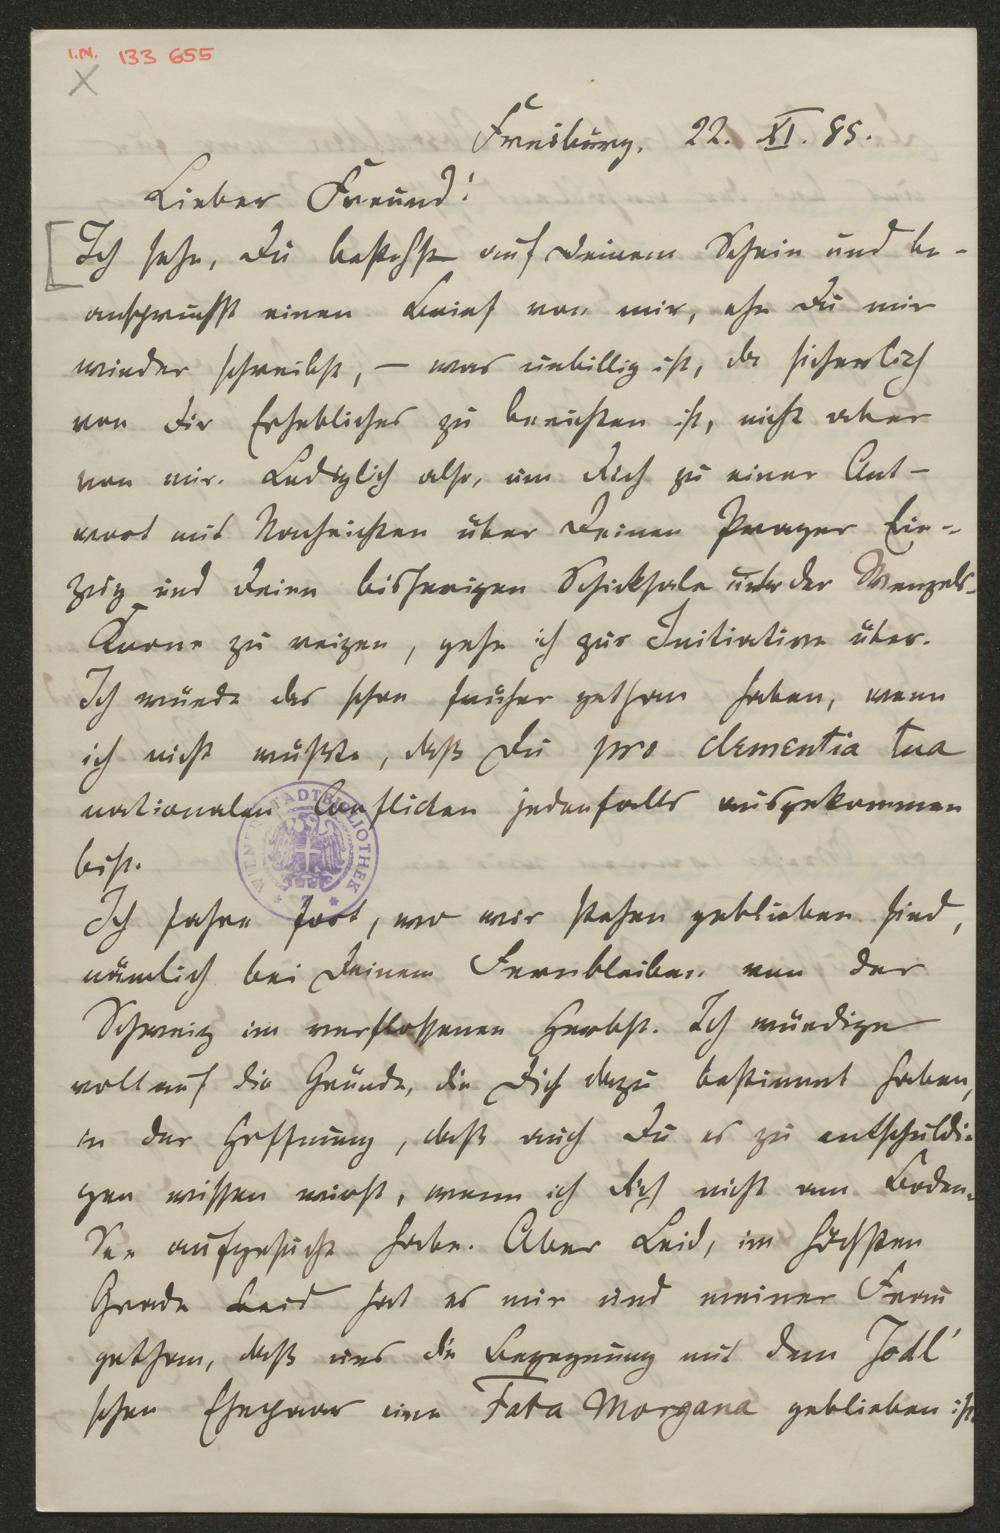 I.N. 133 655
Freiburg, 22. XI. 85.
Lieber Freund!
Ich sehe, Du bestehst auf Deinem Schein und be-
anspruchst einen Brief von mir, ehe Du mir
wieder schreibst, – was unbillig ist, da sicherlich
von Dir Erhebliches zu berichten ist, nicht aber
von mir. Lediglich also, um Dich zu einer Ant-
wort mit Nachrichten über Deinen Prager Ein-
zug und Deine bisherigen Schicksale unter der Wenzels-
Krone zu reizen, gehe ich zur Initiative über.
Ich würde das schon früher gethan haben, wenn
ich nicht wüßte, daß Du pro clementia tua
nationalen Conflicten jedenfalls ausgekommen
bist.
Ich fahre fort, wo wir stehen geblieben sind,
nämlich bei Deinem Fernbleiben von der
Schweiz im verflossenen Herbst. Ich würdige
vollauf die Gründe, die Dich dazu bestimmt haben,
in der Hoffnung, daß auch Du es zu entschuldi-
gen wissen wirst, wenn ich Dich nicht am Boden-
See aufgesucht habe. Aber Leid, im höchsten
Grade Leid hat es mir und meiner Frau
gethan, daß uns die Begegnung mit dem Jodl'
schen Ehepaar eine Fata Morgana geblieben ist.
WIENER STADTBIBLIOTHEK